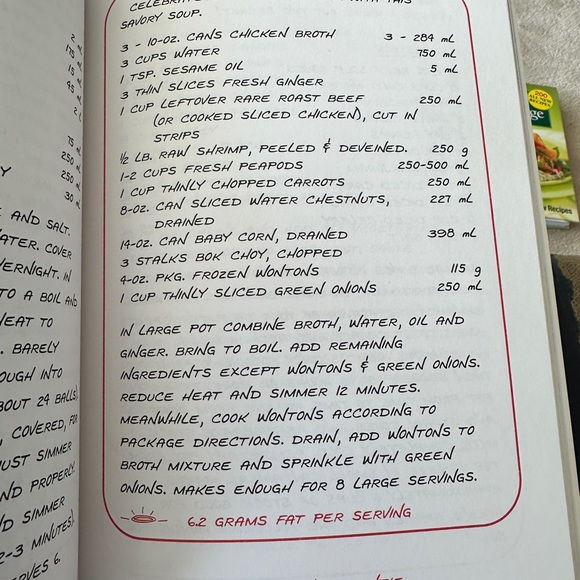 SAVORY SOUP.
3 - 10-OZ. CANS CHICKEN BROTH 3 - 284 mL
3 CUPS WATER 750 mL
1 TSP. SESAME OIL 5 mL
3 THIN SLICES FRESH GINGER
1 CUP LEFTOVER RARE ROAST BEEF 250 mL
(OR COOKED SLICED CHICKEN), CUT IN
STRIPS
½ LB. RAW SHRIMP, PEELED & DEVEINED. 250 g
1-2 CUPS FRESH PEAPODS 250-500 mL
1 CUP THINLY CHOPPED CARROTS 250 mL
8-OZ. CAN SLICED WATER CHESTNUTS, 227 mL
DRAINED
14-OZ. CAN BABY CORN, DRAINED 398 mL
3 STALKS BOK CHOY, CHOPPED
4-OZ. PKG. FROZEN WONTONS 115 g
1 CUP THINLY SLICED GREEN ONIONS 250 mL
IN LARGE POT COMBINE BROTH, WATER, OIL AND
GINGER. BRING TO BOIL. ADD REMAINING
INGREDIENTS EXCEPT WONTONS & GREEN ONIONS.
REDUCE HEAT AND SIMMER 12 MINUTES.
MEANWHILE, COOK WONTONS ACCORDING TO
PACKAGE DIRECTIONS. DRAIN, ADD WONTONS TO
BROTH MIXTURE AND SPRINKLE WITH GREEN
ONIONS. MAKES ENOUGH FOR 8 LARGE SERVINGS.
6.2 GRAMS FAT PER SERVING
2
175
15
45
75
250
250
30
Y
AND SALT.
COVER
IN
TO A BOIL AND
HEAT TO
. BARELY
INTO
24 BALLS)
, COVERED, FOR
SIMMER
PROPERLY.
SIMMER
2-3 MINUTES).
6
200
Recipes